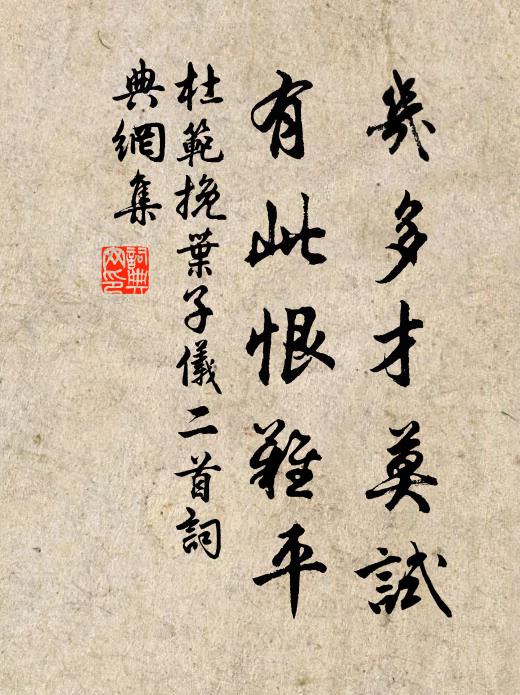 幾多才莫試
有此恨難平
杜範挽葉子儀二首詞
典網集
詞典
网印